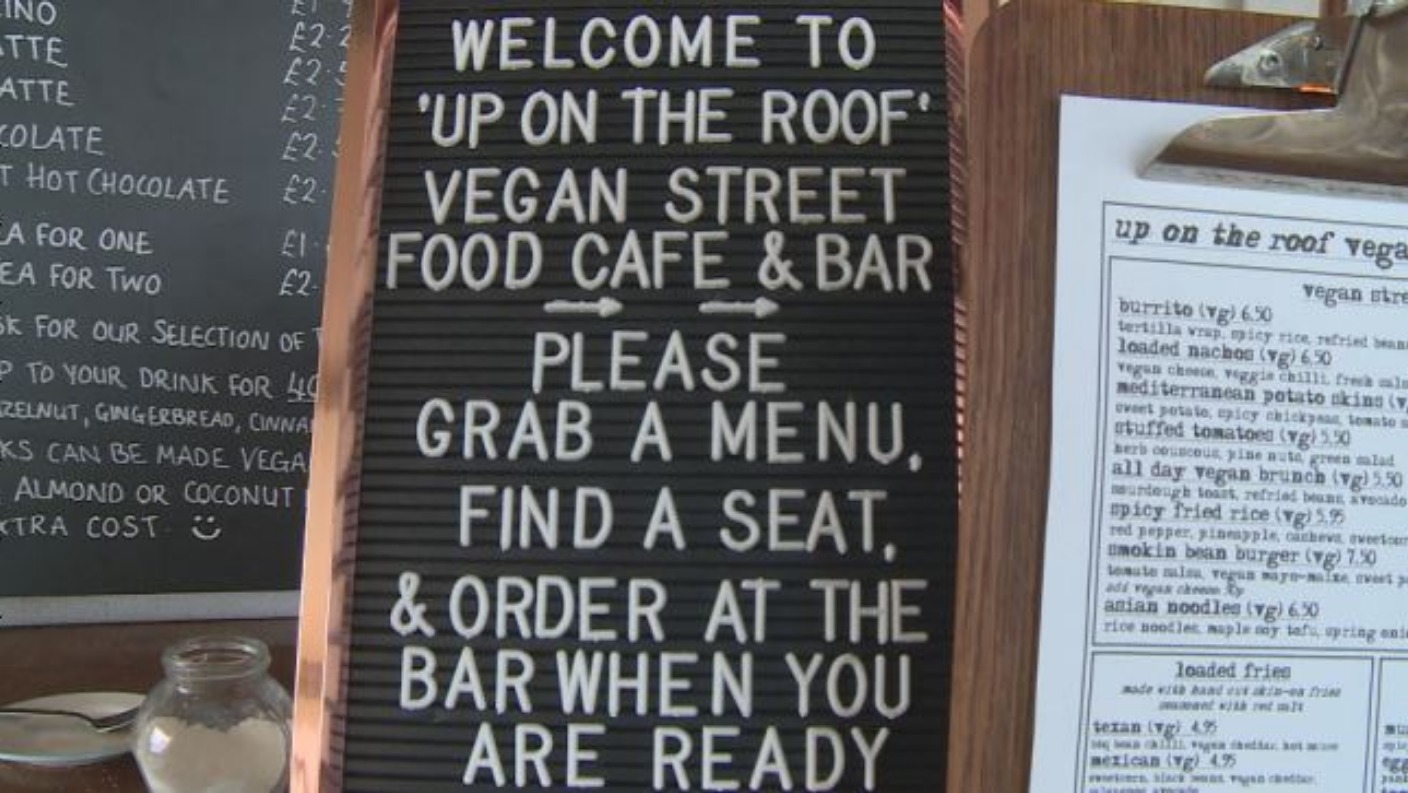 INO
ATTE
ATTE
COLATE
T HOT CHOCOLATE £2.
EA FOR ONE £1.
EA FOR TWO £2.
SK FOR OUR SELECTION OF
P TO YOUR DRINK FOR 40
ZELNUT, GINGERBREAD, CINNA
KS CAN BE MADE VEGA
ALMOND OR COCONUT
XTRA COST
WELCOME TO
'UP ON THE ROOF'
VEGAN STREET
FOOD CAFE & BAR
→ →
PLEASE
GRAB A MENU,
FIND A SEAT,
& ORDER AT THE
BAR WHEN YOU
ARE READY
up on the roof vega
vegan stre
burrito (vg) 6.50
tortilla wrap, spicy rice, refried beans
loaded nachos (vg) 6.50
vegan cheese, veggie chilli, fresh sals
mediterranean potato skins (v
sweet potato, spicy chickpeas, tomato s
stuffed tomatoes (vg) 5.50
herb couscous, pine nuts, green salad
all day vegan brunch (vg) 5.50
sourdough toast, refried beans, avocado
spicy fried rice (vg) 5.95
red pepper, pineapple, cashews, sweetcor
smokin bean burger (vg) 7.50
tomato salsa, vegan mayo-naise, sweet p
add vegan cheese
asian noodles (vg) 6.50
rice noodles, maple soy tofu, spring oni
loaded fries
made with hand cut skin-on fries
seasoned with red salt
texan (vg) 4.95
bbq bean chilli, vegan cheddar, hot sauce
mexican (vg) 4.95
sweetcorn, black beans, vegan cheddar,